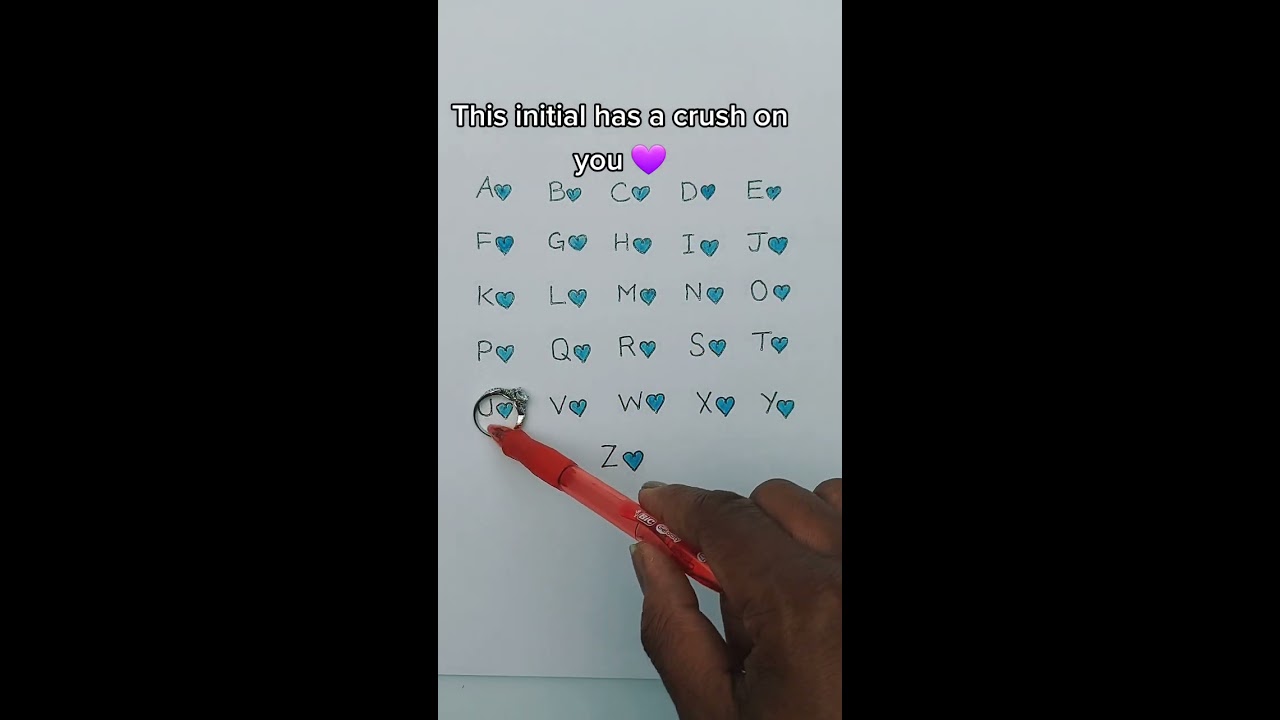 This initial has a crush on
you 💜
A B C D E
F G H I J
K L M N O
P Q R S T
U V W X Y
Z
BIC